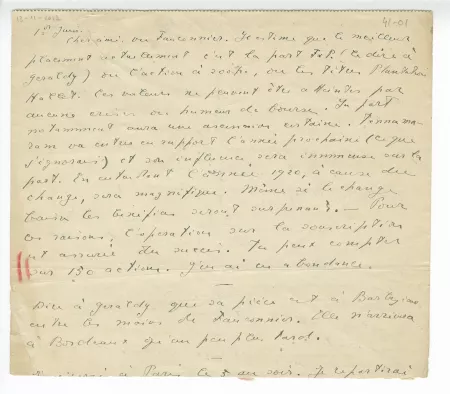 12-11-2012
41-01
1er Juin.
Cher ami du Fauconnier. J'estime que le meilleur
placement actuellement c'est la part F&P. (le dire à
Géraldy) ou l'action à votre, ou les titres Plantation
Hallet. Ces valeurs ne peuvent être atteintes par
aucune crise ou humeur de bourse. La part
notamment aura une ascension certaine.
va entrer en rapport l'année prochaine (ce que
j'ignorais) et son influence sera immense sur la
part. En outre l'année 1920, à cause du
change, sera magnifique. Même si le change
baisse les bénéfices seront surprenants. — Pour
ces raisons, l'opération sur la souscription
est assurée du succès. Tu peux compter
sur 150 actions. J'en ai en abondance.
Dire à Géraldy que sa pièce est à Barbezieux
entre les mains de Fauconnier. Elle n'arrivera
à Bordeaux qu'un peu plus tard.
à Paris le 5 au soir. Je repartirai